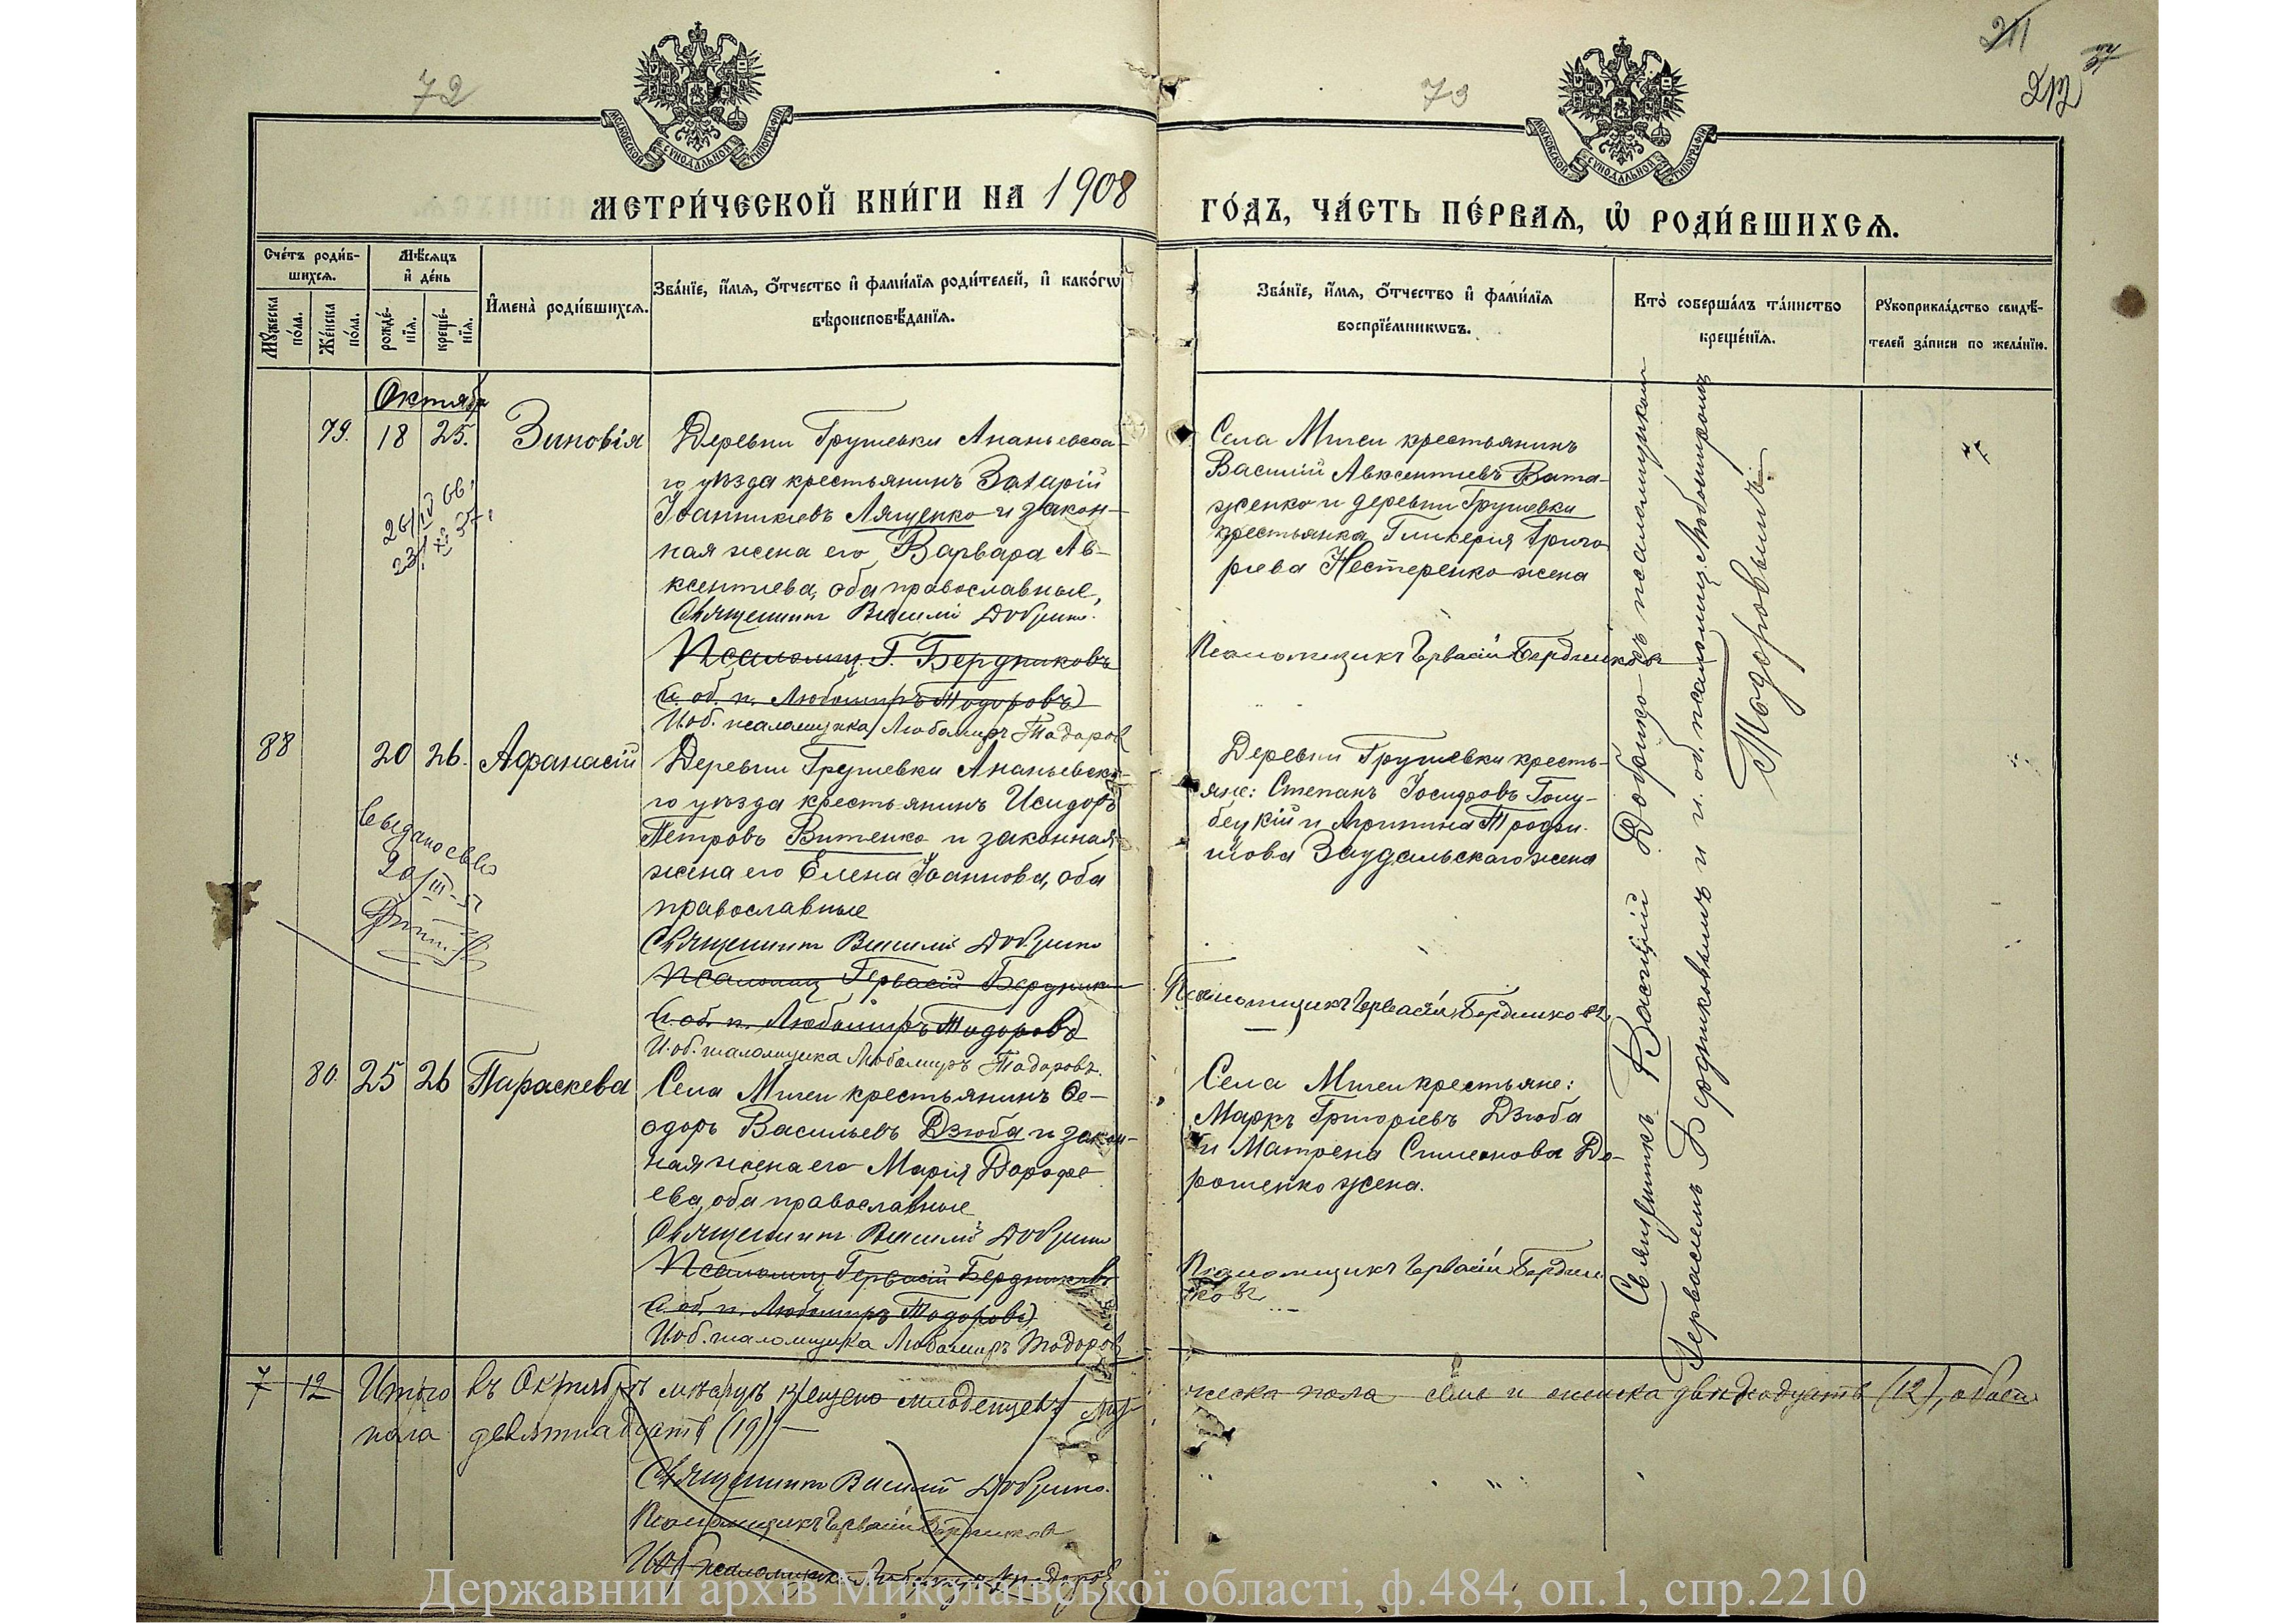 72
73
211
212
МОСКОВСКОЙ СѴНОДАЛЬНОЙ ТИПОГРАФІИ
МОСКОВСКОЙ СѴНОДАЛЬНОЙ ТИПОГРАФІИ
МЕТРИ́ЧЕСКОЙ КНИ́ГИ НА 1908
ГО́ДЪ, ЧА́СТЬ ПЕ́РВАѦ, Ѡ҆ РОДИ́ВШИХСѦ.
Сче́тъ роди́в-
шихсѧ.
Мѹ́жеска
по́ла.
Же́нска
по́ла.
Мѣ́сѧцъ
и҆ де́нь
рожде́-
нїѧ.
креще́-
нїѧ.
И҆мена̀ роди́вшихсѧ.
Зва́нїе, и҆́мѧ, ѻ҆́тчество и҆ фами́лїѧ роди́телей, и҆ како́гѡ
вѣроисповѣ́данїѧ.
Зва́нїе, и҆́мѧ, ѻ҆́тчество и҆ фами́лїѧ
воспрїе́мникѡвъ.
Кто̀ соверша́лъ та́инство
креще́нїѧ.
Рѹкоприкла́дство свидѣ́-
телей за́писи по жела́нїю.
Октябрь
79. 18 25. Зиновія
Деревни Грушевки Ананьевска-
го уѣзда крестьянинъ Захарій
Іоанникіевъ Лященко и закон-
ная жена его Варвара Ав-
ксентіева, оба православные,
Священникъ Василій Добрицко.
Псаломщ. Г. Бердниковъ
И. об. п. Любомиръ Тодоровъ
И. об. псаломщика Любомиръ Тодоров
Села Мигеи крестьянинъ
Василій Авксентіевъ Вата-
женко и деревни Грушевки
крестьянка Гликерія Григо-
ріева Нестеренко жена
Псаломщикъ Гервасій Бердниковъ
88 20 26. Афанасій
выдано св-во
20/III-51
Деревни Грушевки Ананьевска-
го уѣзда крестьянинъ Исидоръ
Петровъ Витенко и законная
жена его Елена Іоаннова, оба
православные
Священникъ Василій Добрицко
Псаломщ Гервасій Бердников
И. об. п. Любомиръ Тодоровъ
И. об. псаломщика Любомиръ Тодоровъ.
Деревни Грушевки кресть-
яне: Степанъ Іосифовъ Голу-
бецкій и Агрипина Трофи-
мова Заудальскаго жена
Псаломщикъ Гервасій Бердниковъ
80. 25 26 Параскева
Села Мигеи крестьянинъ Ѳе-
одоръ Васильевъ Дзюба и закон-
ная жена его Марія Дорофе-
ева, оба православные
Священникъ Василій Добрицко
Псаломщ Гервасій Бердниковъ
И. об. п. Любомиръ Тодоровъ
И. об. псаломщика Любомиръ Тодоров
Села Мигеи крестьяне:
Маркъ Григоріевъ Дзюба
и Матрена Симеонова До-
рошенко жена.
Псаломщикъ Гервасій Бердни-
ковъ
Священникъ Василій Добрицко съ псаломщиком
Гервасіемъ Бердниковымъ и и. об. псаломщ. Любомиромъ
Тодоровымъ.
7 12 Итого въ Октябрѣ мѣсяцѣ крещено младенцевъ муж
ческа пола семь и женска двѣнадцать (12), обоего
пола девятнадцать (19)
Священникъ Василій Добрицко.
Псаломщикъ Гервасій Бердников
И. об. псаломщика Любомиръ Тодоров
Державний архів Миколаївської області, ф.484, оп.1, спр.2210